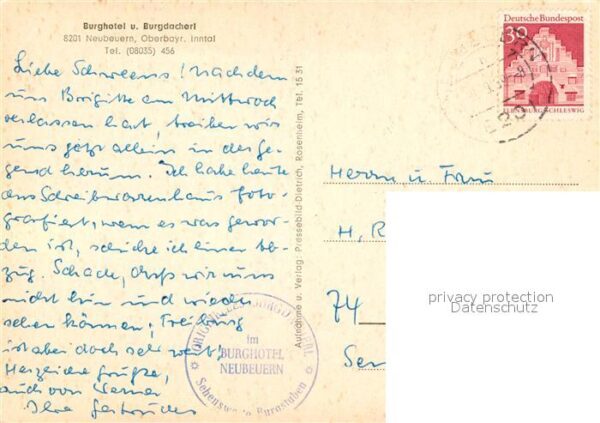 Burghotel u. Burgdacherl
8201 Neubeuern, Oberbayr. Inntal
Tel. (08035) 456
Liebe Schweens! Nachdem
uns Brigitte am Mittwoch
verlassen hat, treiben wir
uns jetzt allein in der Ge-
gend herum. Ich habe heute
das Schreibwarenhaus foto-
grafiert, wenn es was gewor-
den ist, schicke ich einen Ab-
zug. Schade, daß wir uns
nicht hin und wieder
sehen können; Freiburg
ist aber doch sehr weit!
Herzliche Grüße,
auch von Werner
Ihre Gertrudes
Aufnahme u. Verlag: Pressebild-Dietrich, Rosenheim, Tel. 15 31
im
BURGHOTEL
NEUBEUERN
Deutsche Bundespost
30
FLENSBURG/SCHLESWIG
Herrn u. Frau
H. R
74
Sen
privacy protection
Datenschutz